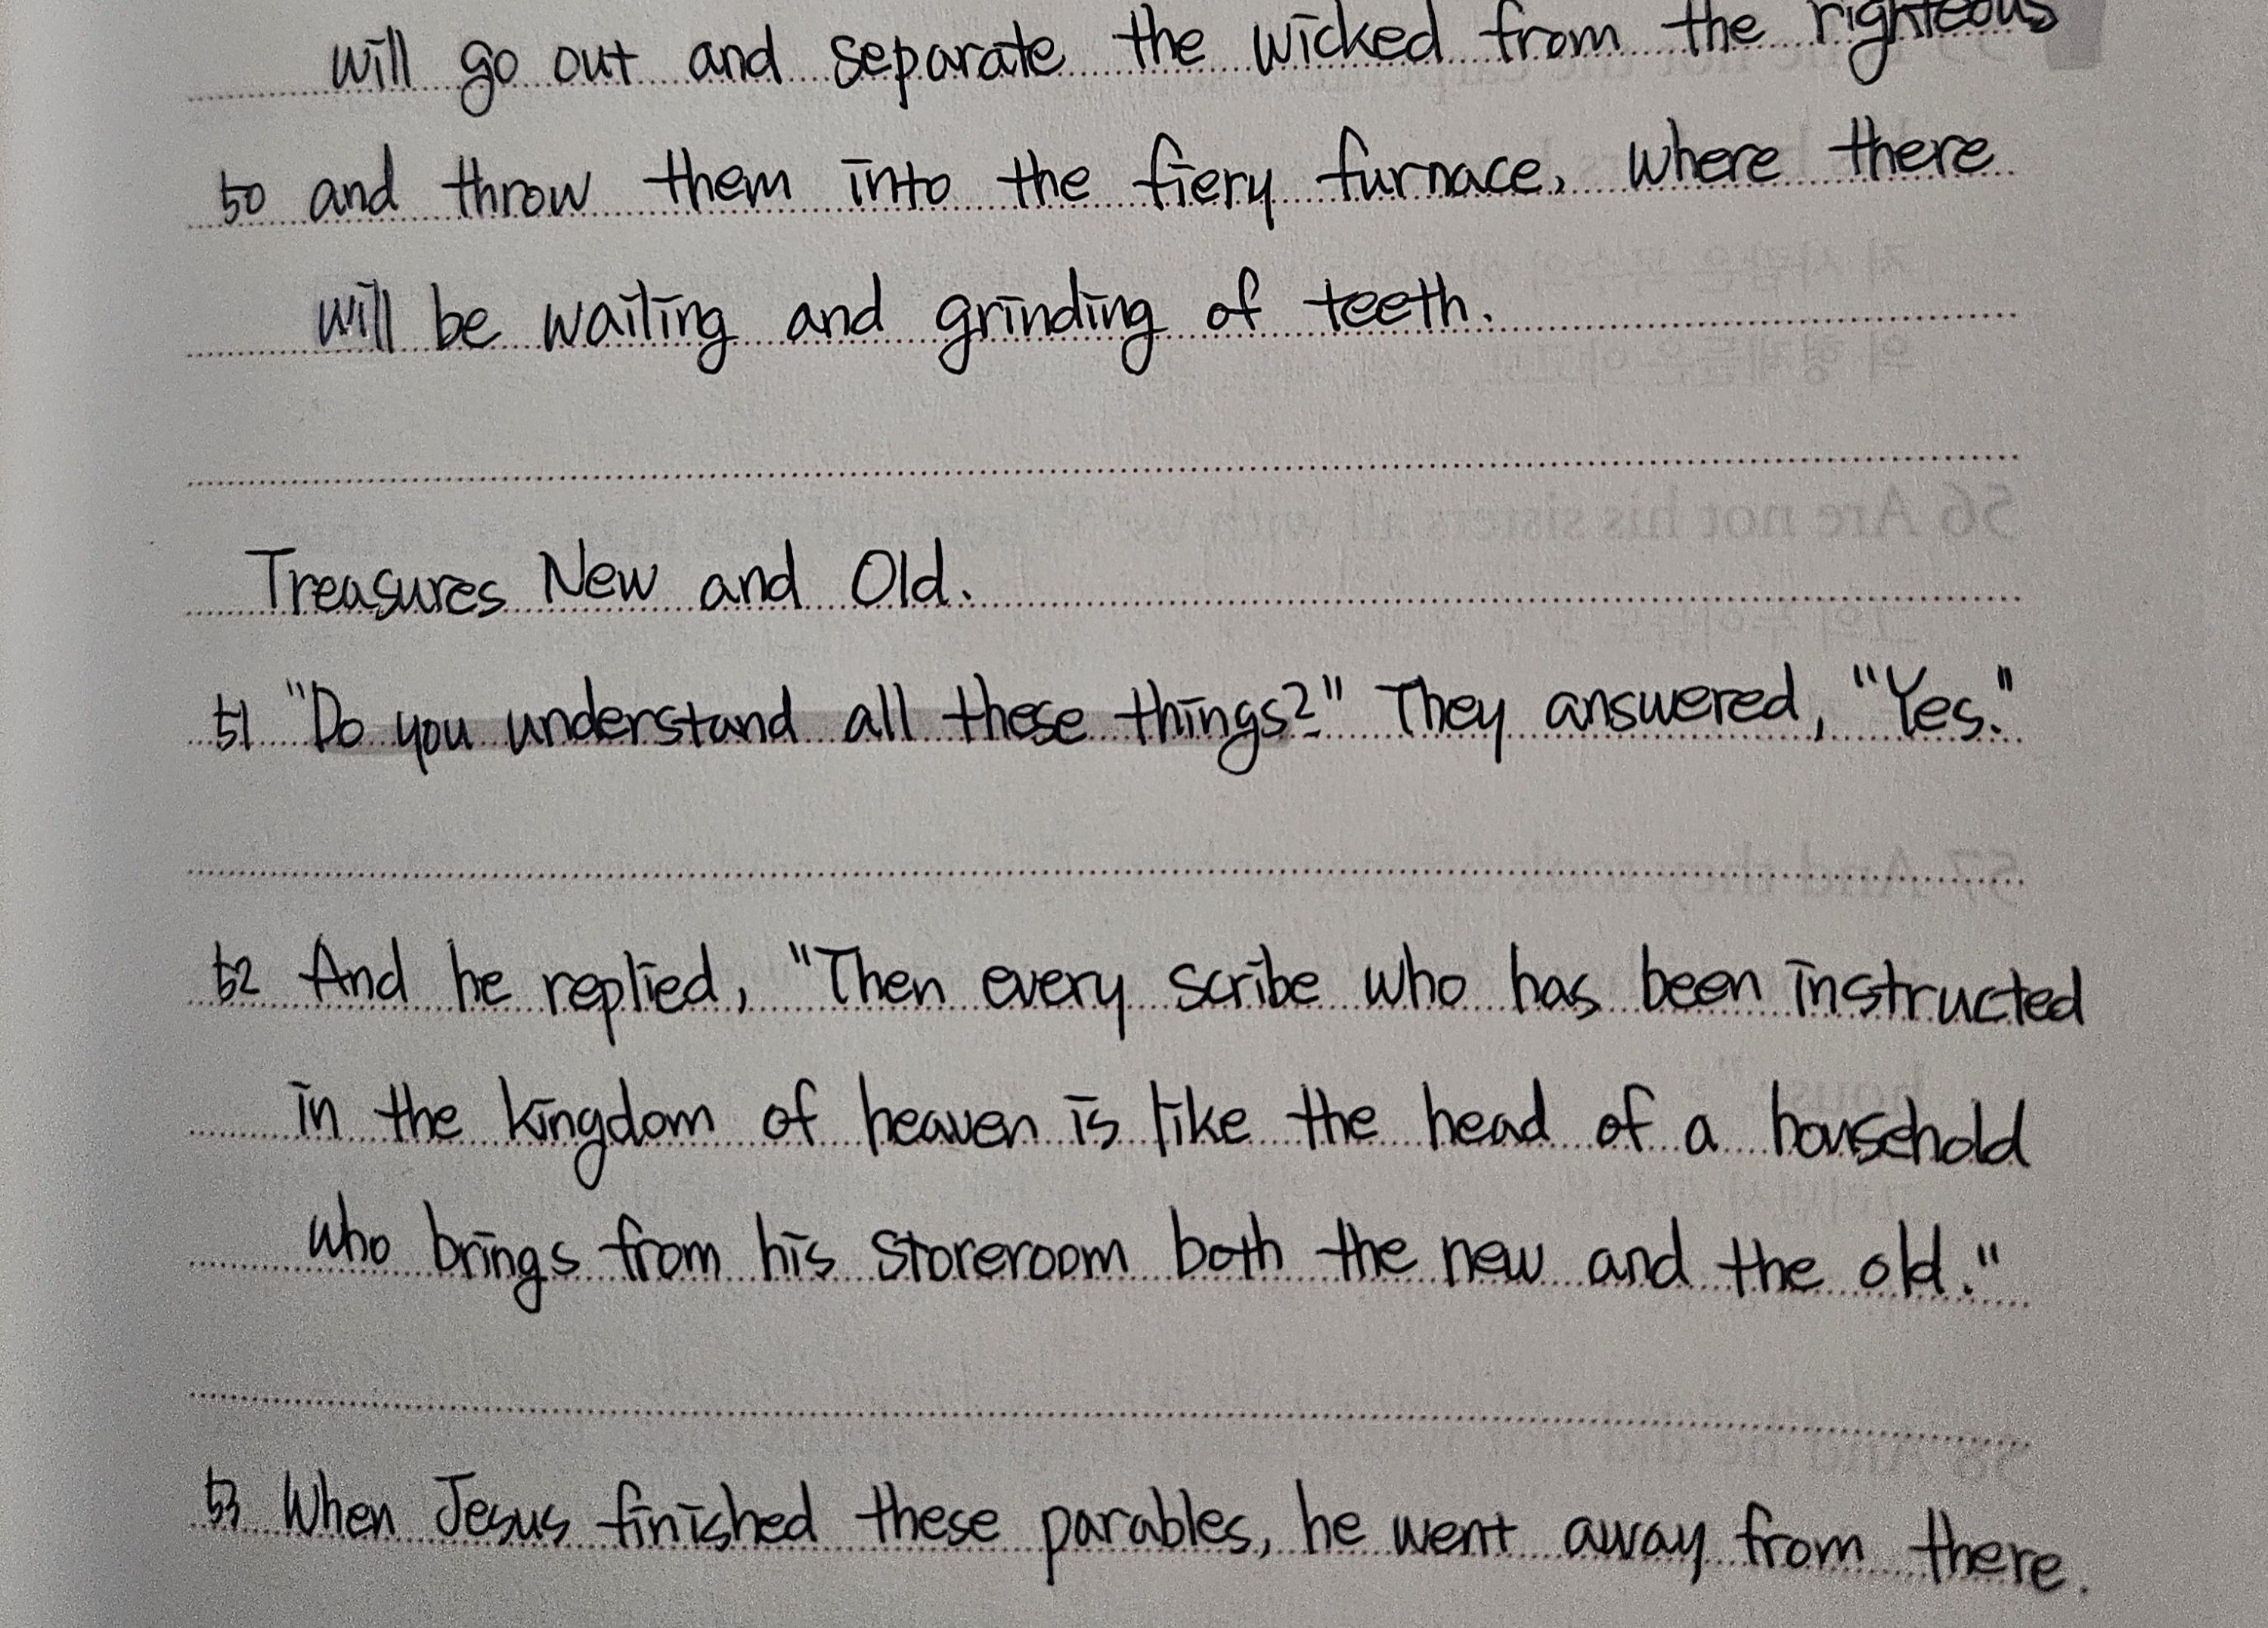 will go out and separate the wicked from the righteous
50 and throw them into the fiery furnace, where there
will be wailing and grinding of teeth.
Treasures New and Old.
51 "Do you understand all these things?" They answered, "Yes."
52 And he replied, "Then every scribe who has been instructed
in the kingdom of heaven is like the head of a household
who brings from his storeroom both the new and the old."
53 When Jesus finished these parables, he went away from there.